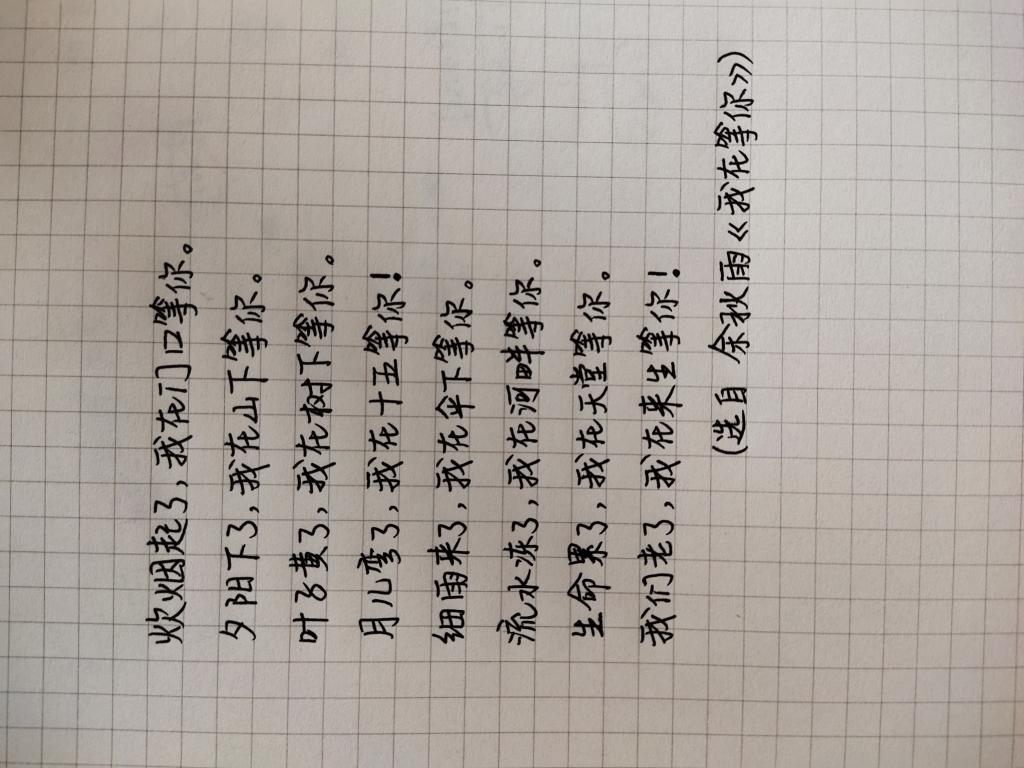 炊烟起了,我在门口等你。
夕阳下了,我在山下等你。
叶子黄了,我在树下等你。
月儿弯了,我在十五等你!
细雨来了,我在伞下等你。
流水冻了,我在河畔等你。
生命累了,我在天堂等你。
我们老了,我在来生等你!
(选自 余秋雨《我在等你》)